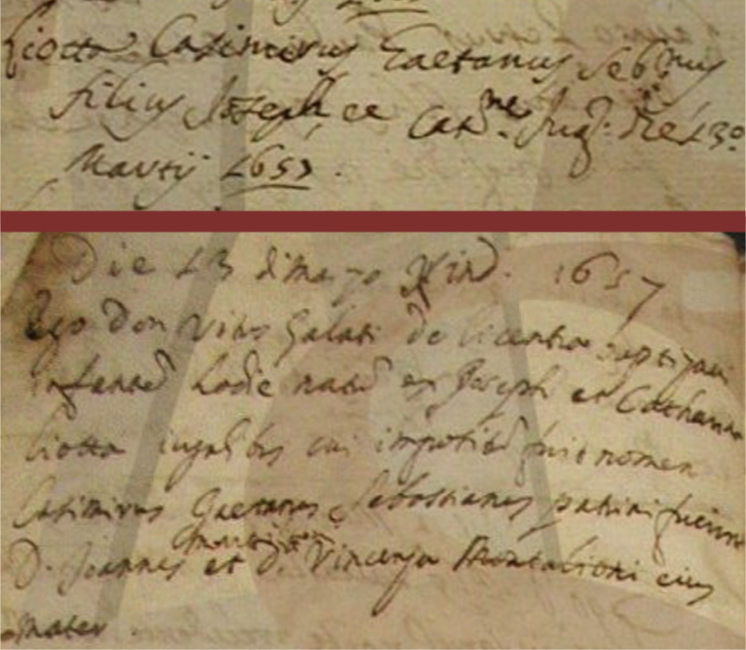 Ciotta Casimirus Gaetanus Seb.nus
filius Joseph et Cat.ne Jug: die 13º
Martij 1657.
Die 13 di Marzo Xind. 1657
Ego Don Vito Galati de licentia baptizavi
infantem hodie natum ex Joseph et Catharina
Ciotta jugalibus cui impositum fuit nomen
Casimirus Gaetanus Sebastianus patrini fuerunt
D. Joannes et D. Vincenza Montalioni eius
mater